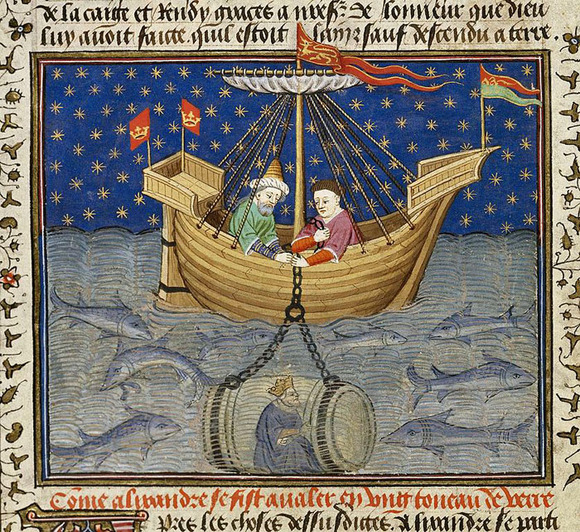 de la caige et Rendy graces a de lonneur que dieu
luy auoit faicte quil estoit sain z sauf descendu a terre.
Cõme alixandre se fist aualer en vng toneau de verre
Pres les choses dessusdictes. Alixandre se parti